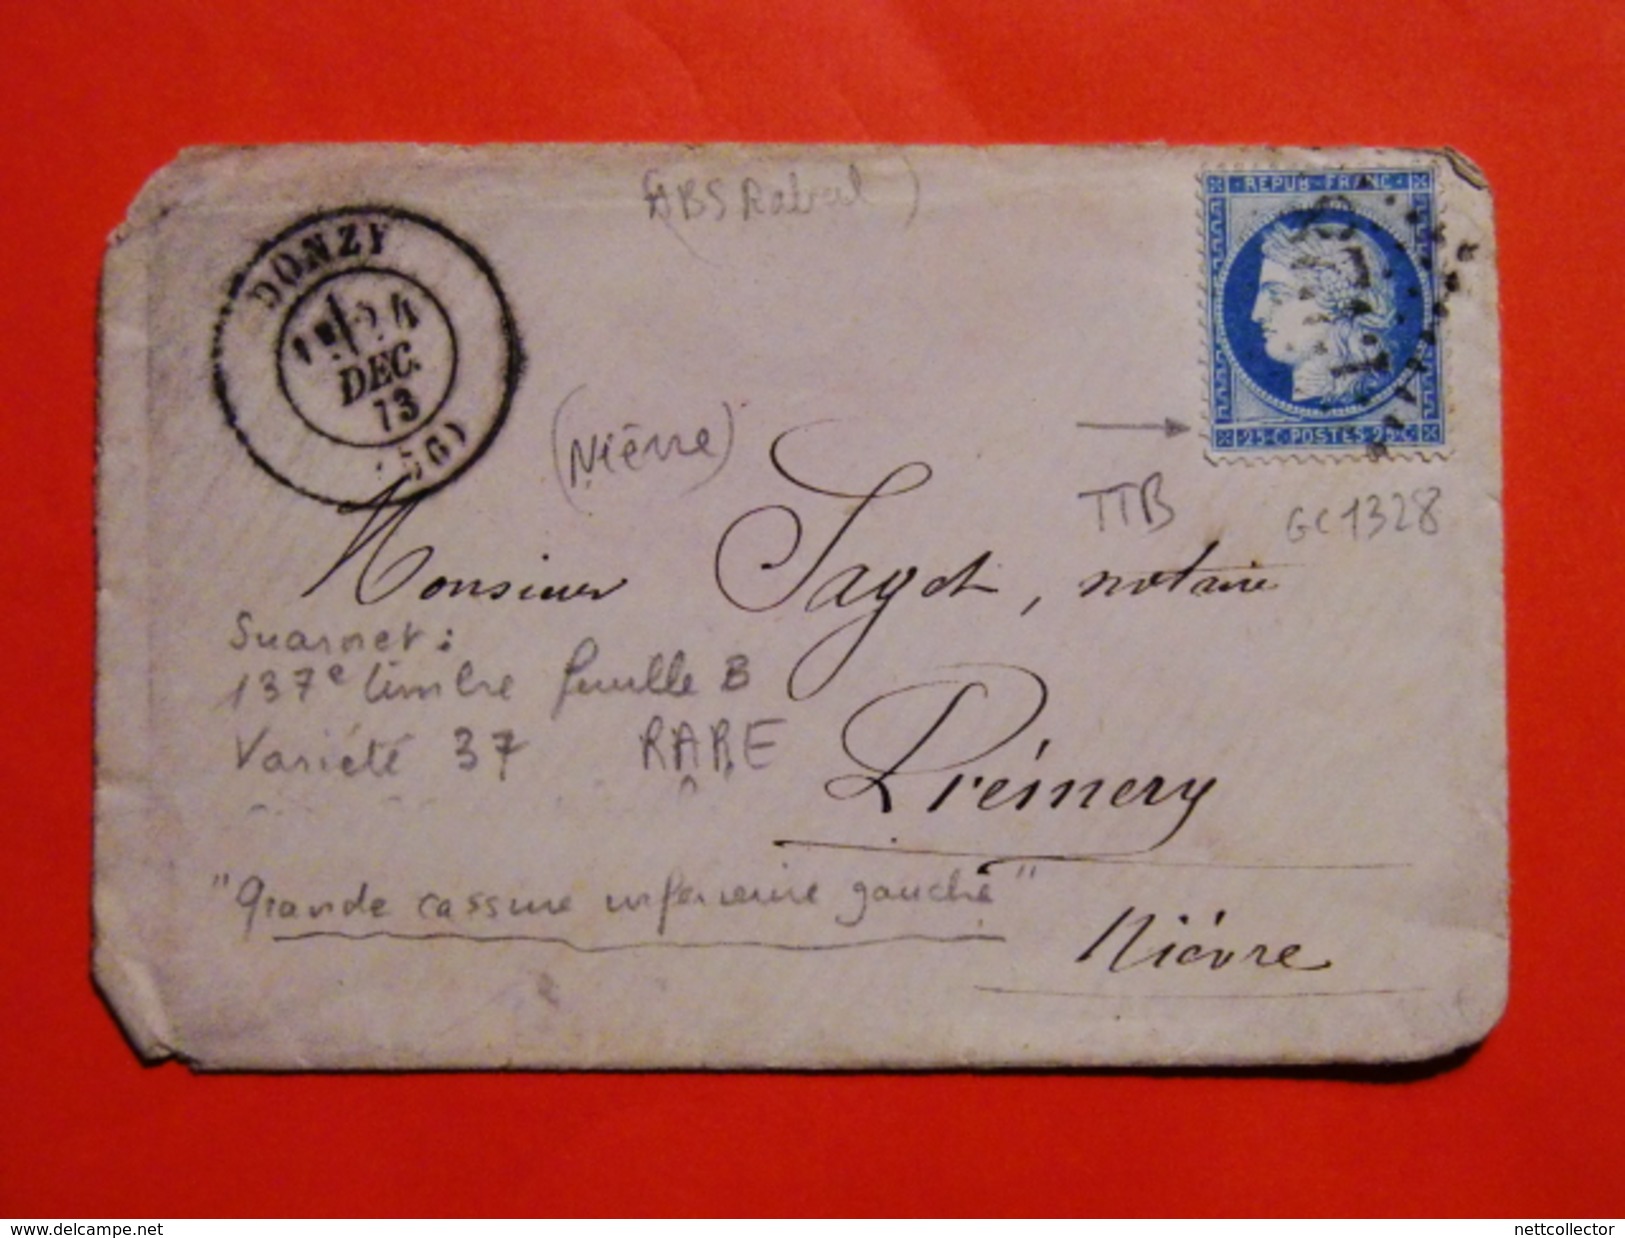 (ABS
REPUB · FRANC
DONZY
24
DEC.
73
(56)
(Nièvre)
25·C·POSTES·25·C
TTB
GC 1328
Monsieur Sagot, notaire
Suarnet :
137e timbre feuille B
Variété 37 RARE
Prémery
"Grande cassure inférieure gauche"
Nièvre
www.delcampe.net
nettcollector